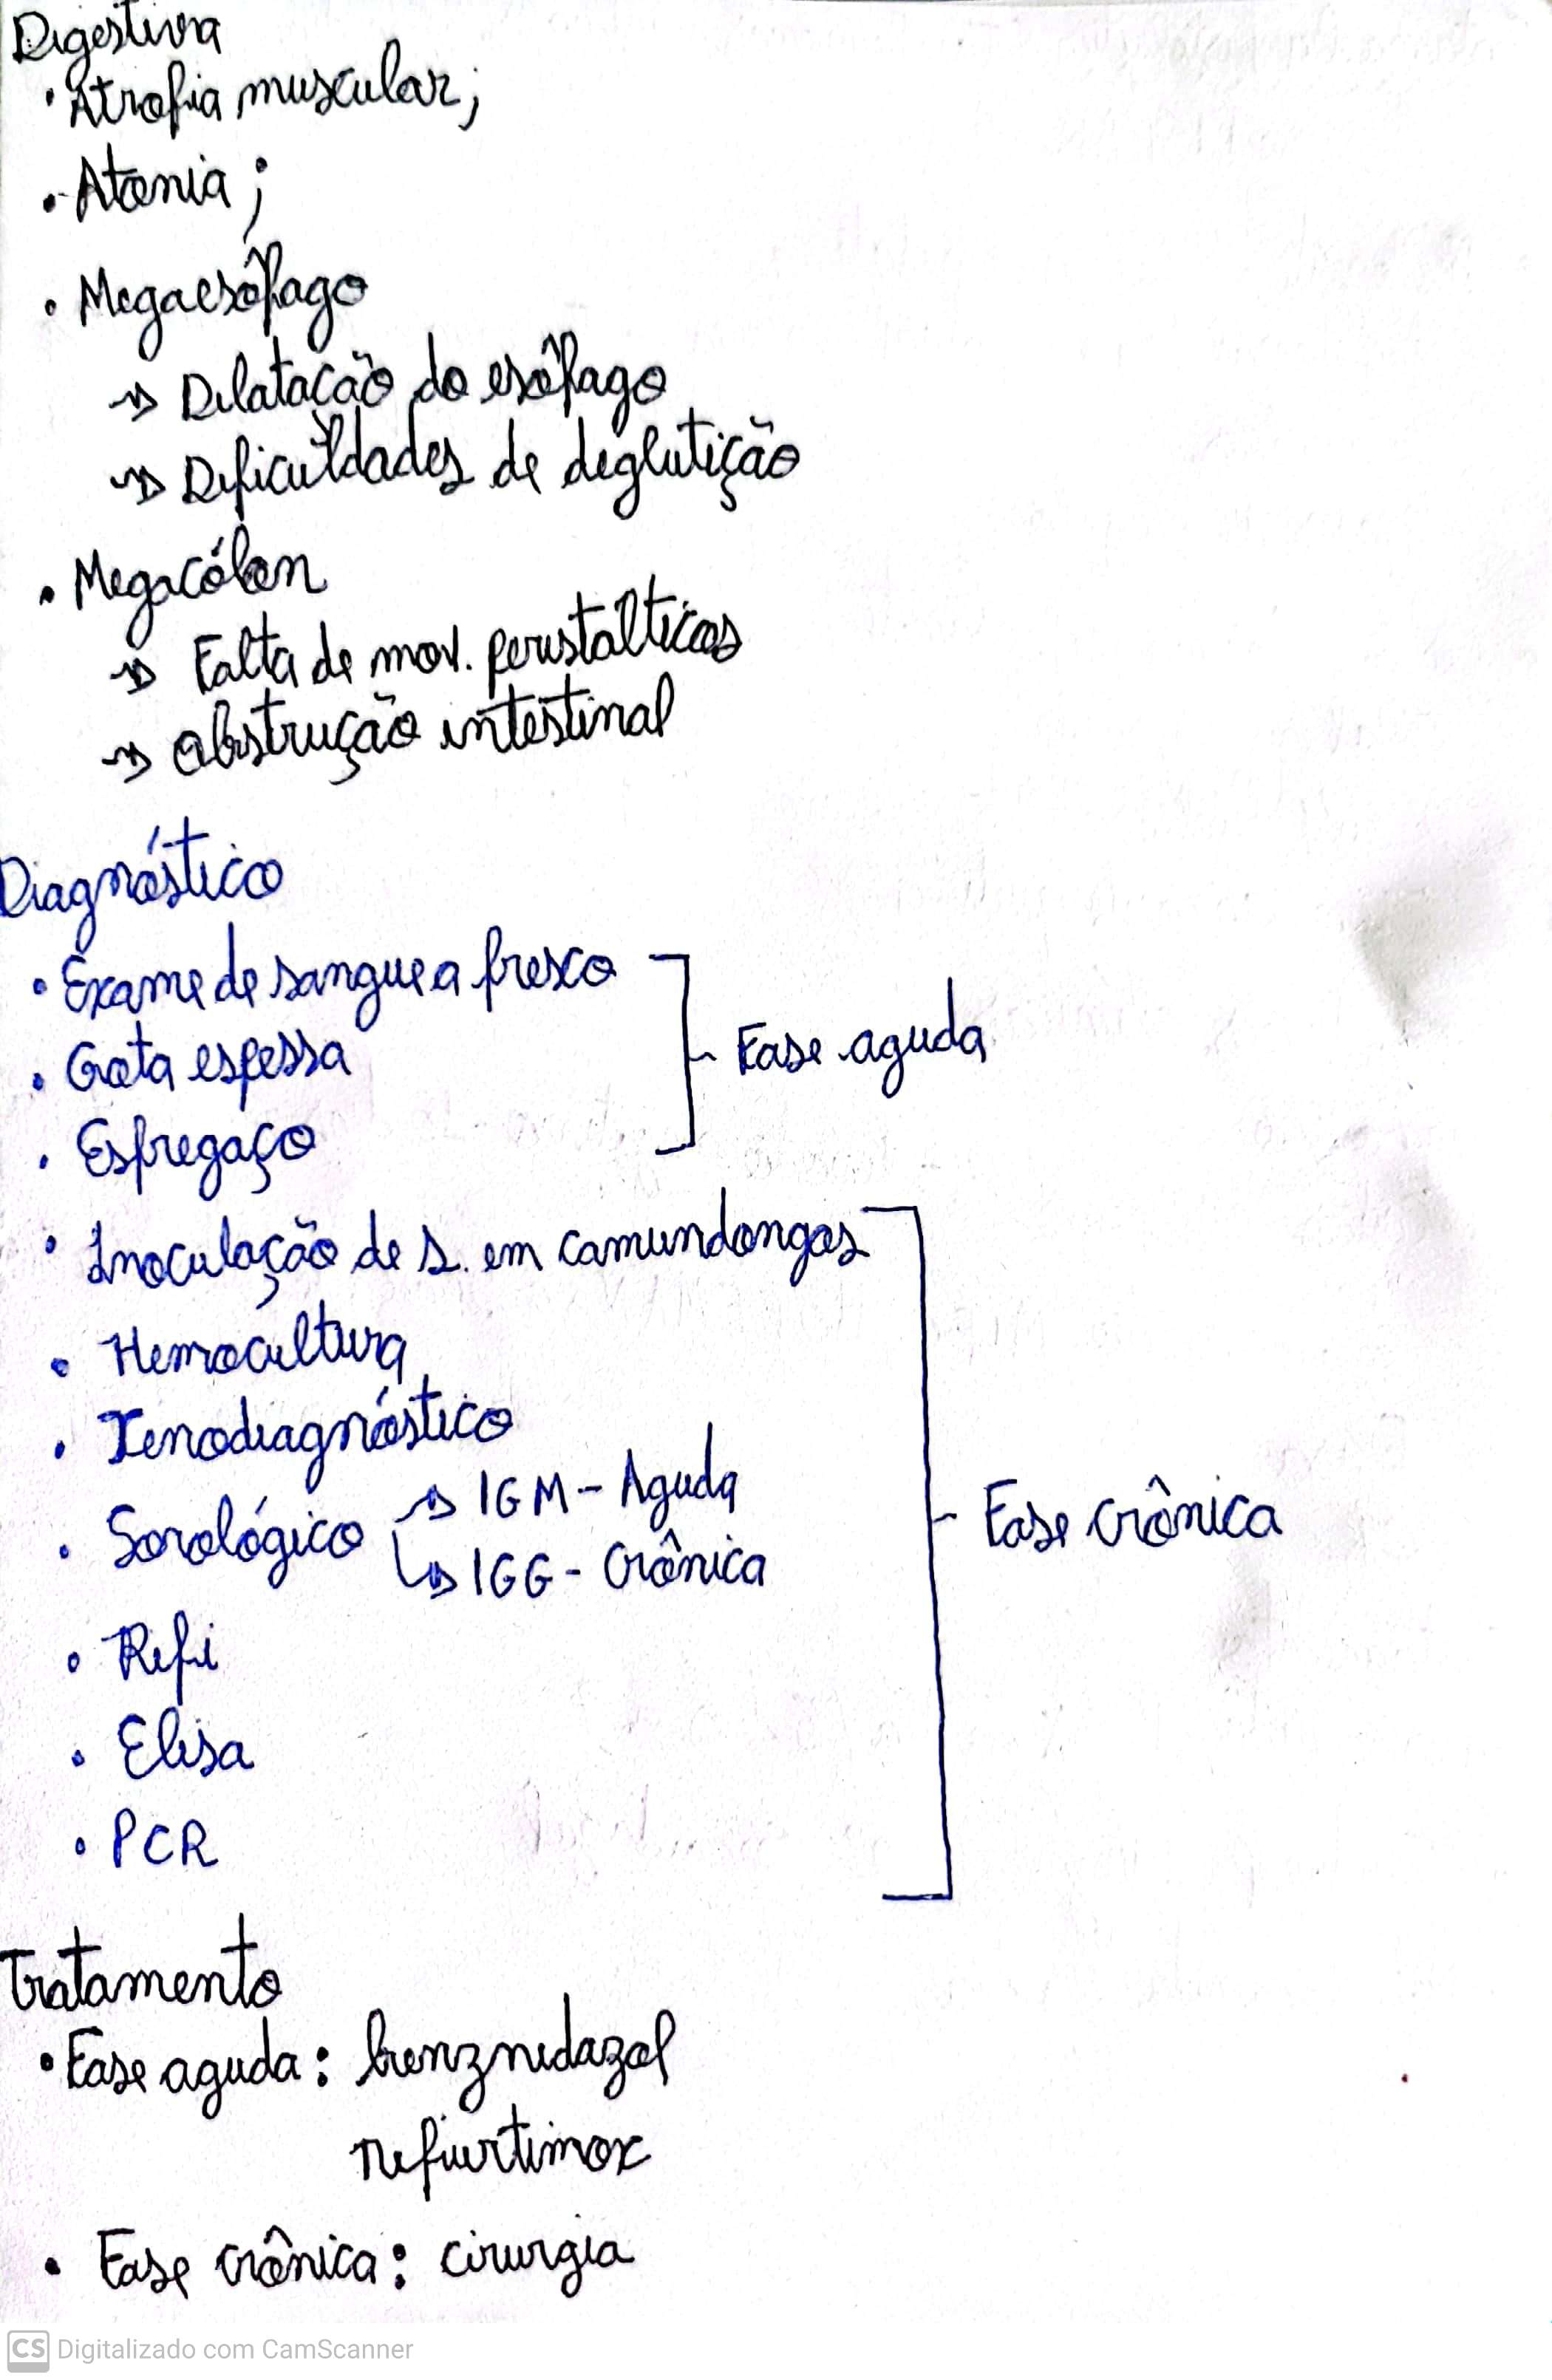 Digestiva
• Atrofia muscular;
• Atonia;
• Megaesôfago
→ Dilatação do esôfago
→ Dificuldades de deglutição
• Megacólon
→ Falta de mov. peristalticos
→ obstrução intestinal
Diagnóstico
• Exame de sangue a fresco
• Gota espessa
Fase aguda
• Esfregaço
• Inoculação de s. em camundongos
• Hemocultura
• Xenodiagnóstico
• Sorológico → IGM - Aguda
→ IGG - Crônica
Fase crônica
• Rifi
• Elisa
• PCR
Tratamento
• Fase aguda: benznidazol
nifurtimox
• Fase crônica: cirurgia
CS Digitalizado com CamScanner